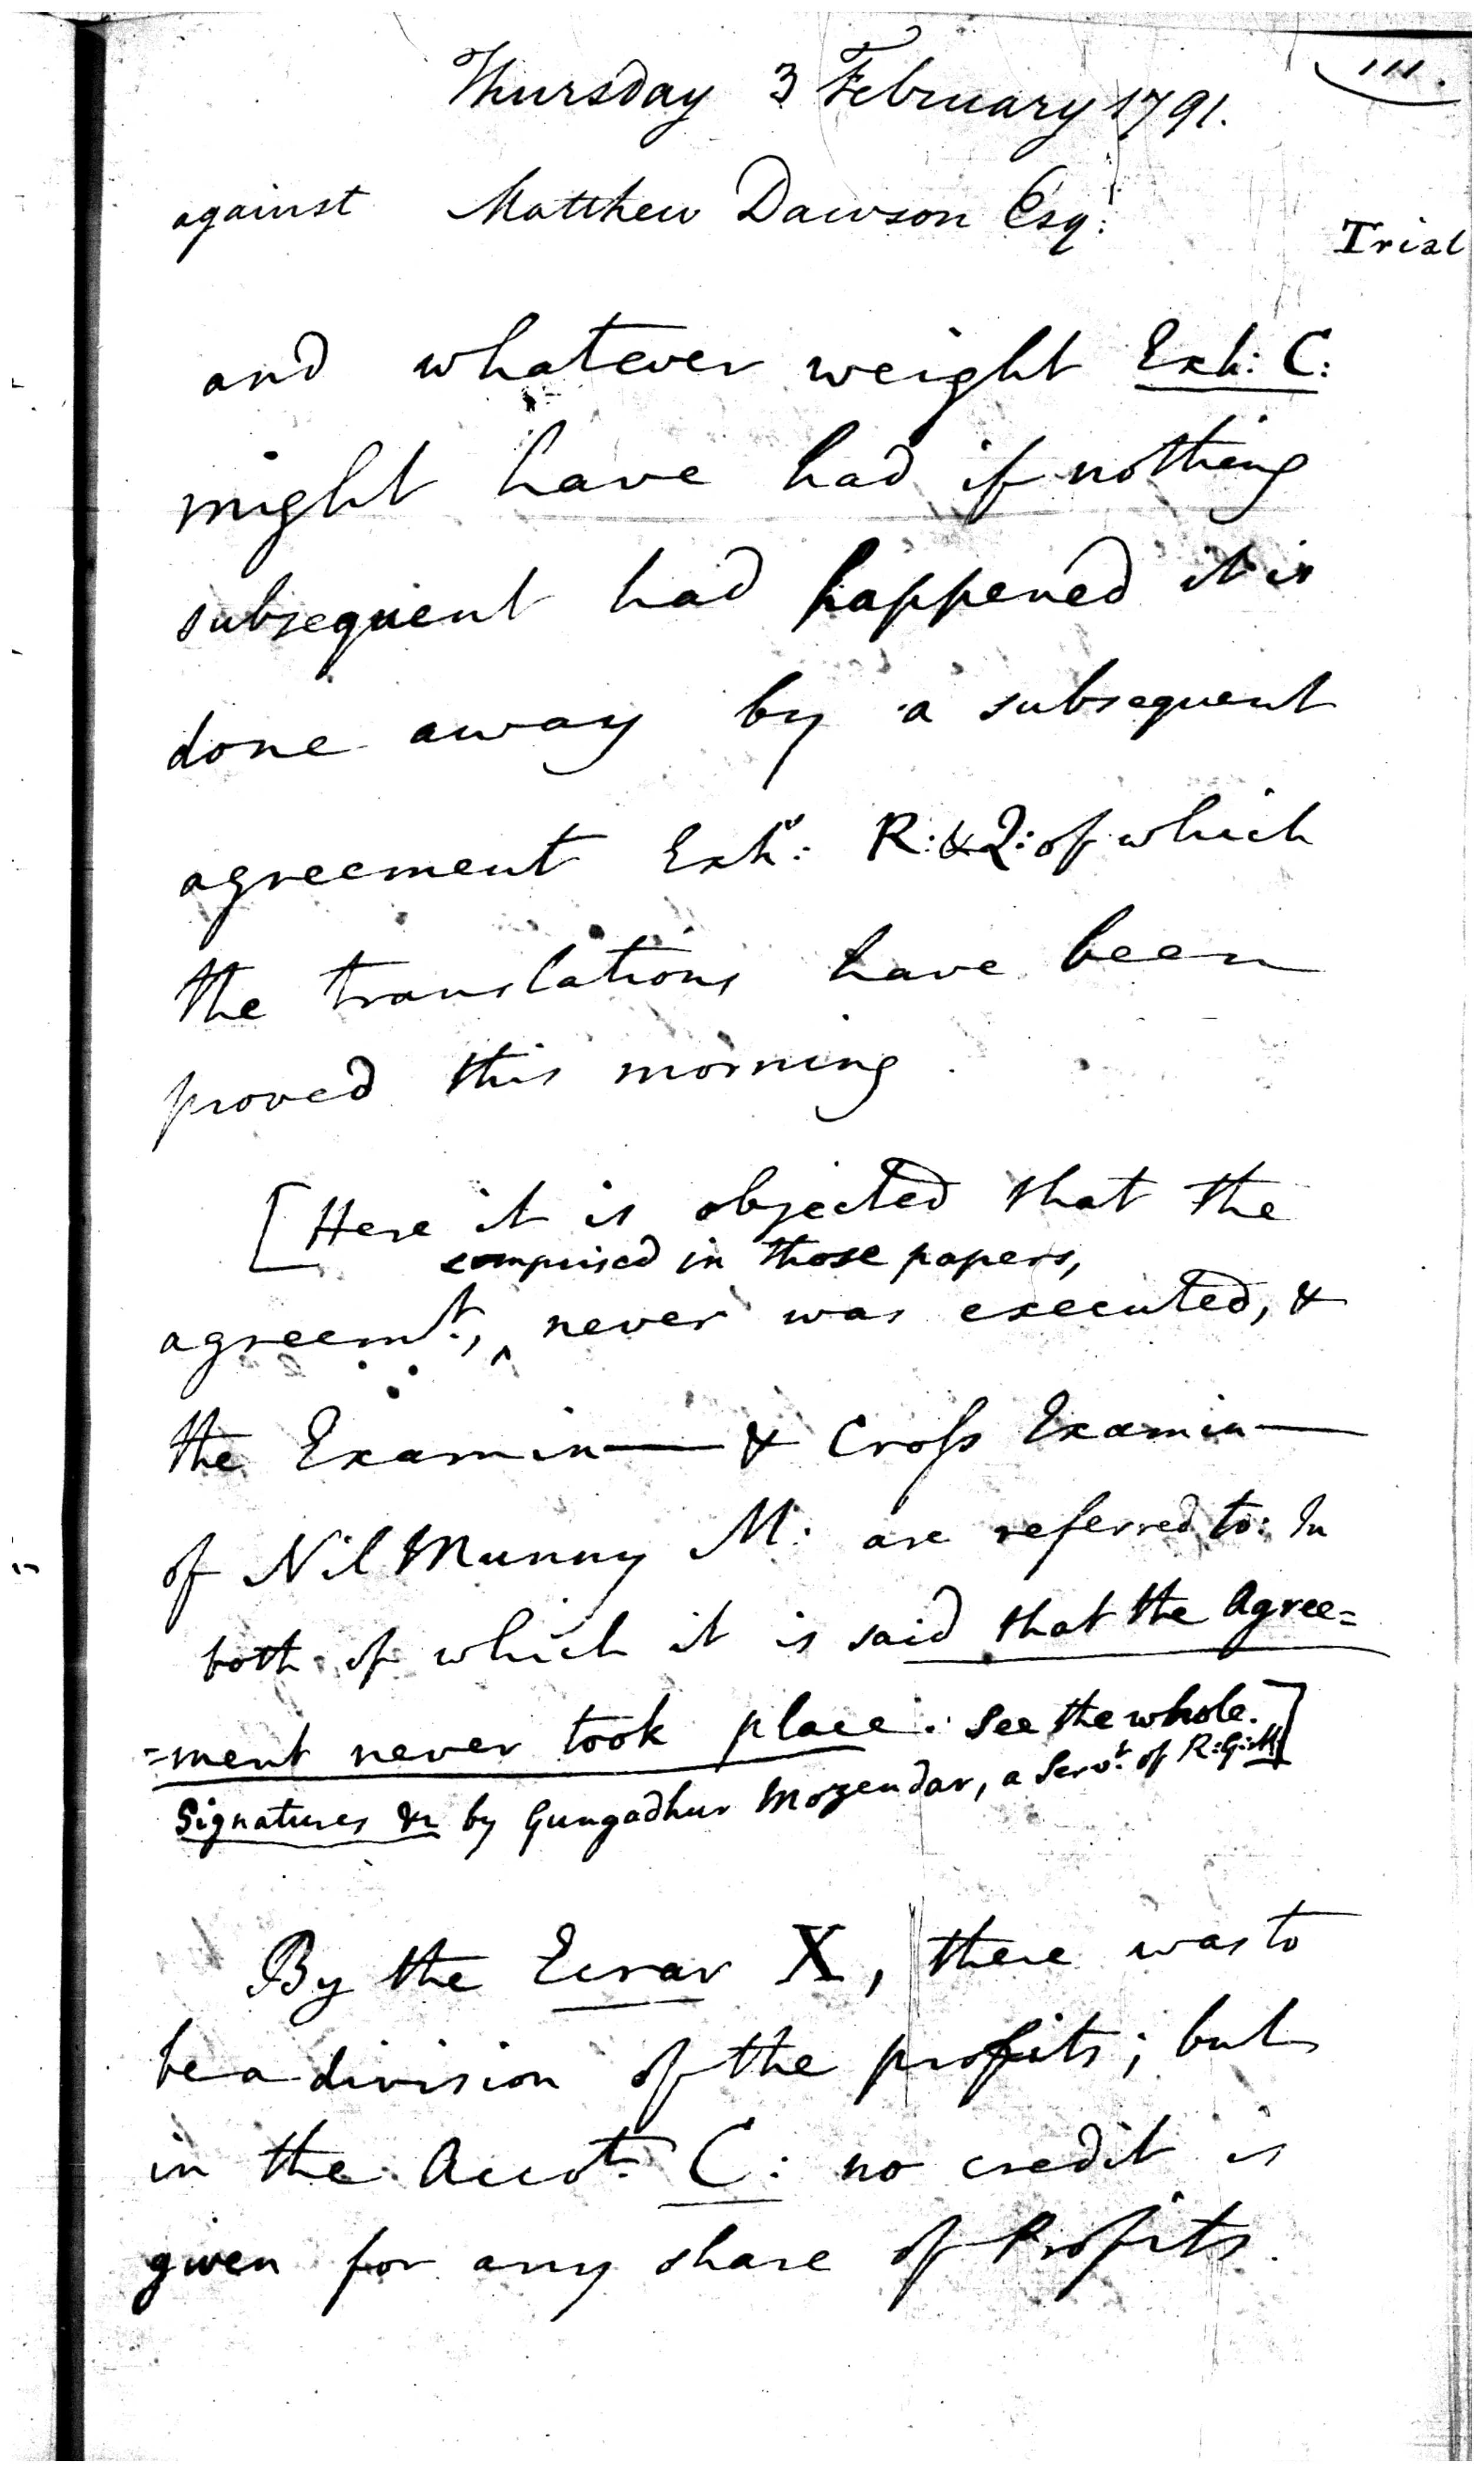 111.
Thursday 3 February 1791.
against Matthew Dawson Esq:
Trial
and whatever weight Exh: C:
might have had if nothing
subsequent had happened it is
done away by a subsequent
agreement Exhs: R: & Q: of which
the translations have been
proved this morning.
[Here it is objected that the
comprised in those papers,
agreemt., ^ never was executed, &
the Examin— & Cross Examin—
of Nil Munny M: are referred to: In
both of which it is said that the Agree=
=ment never took place. See the whole.]
Signatures &c by Gungadhur Mozendar, a Servt. of R:G:M:
By the Ecrar X, there was to
be a division of the profits; but
in the Accot. C: no credit is
given for any share of Profits.